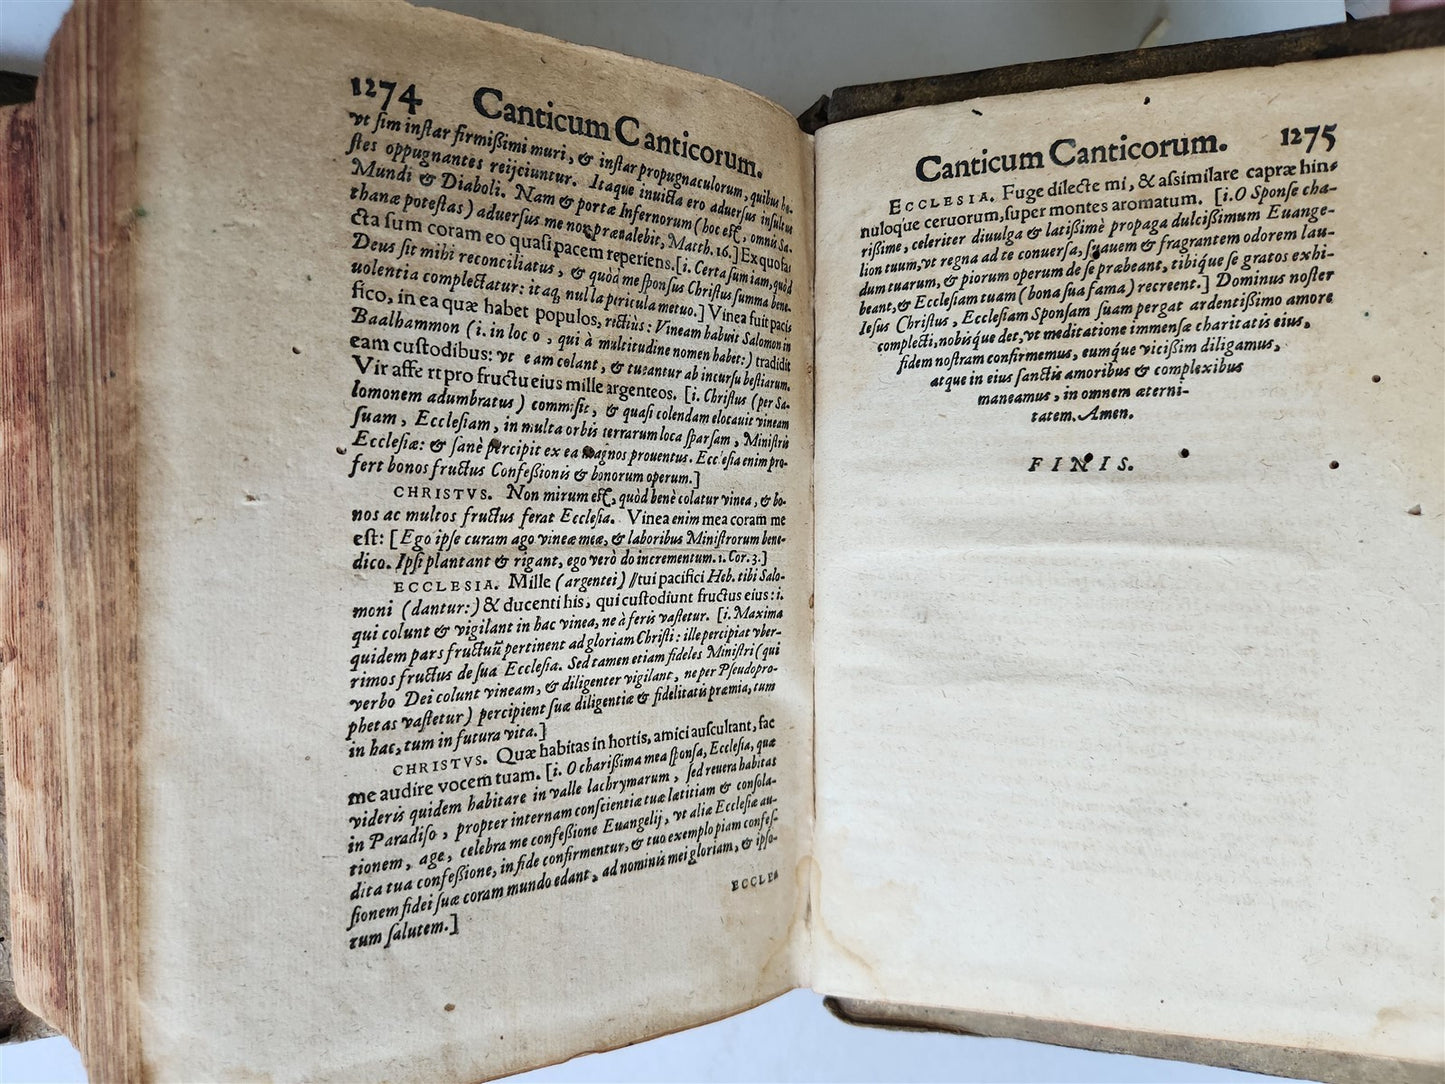 1274 Canticum Canticorum.
vt sim instar firmißimi muri, & instar propugnaculorum, quibus ho-
stes oppugnantes reijciuntur. Itaque inuicta ero aduersus insultus
Mundi & Diaboli. Nam & portæ Infernorum (hoc est, omnis Sa-
thanæ potestas) aduersus me non præualebit, Matth. 16.] Ex quo fa-
cta sum coram eo quasi pacem reperiens. [i. Certa sum iam, quòd
Deus sit mihi reconciliatus, & quòd me sponsus Christus summa bene-
uolentia complectatur: itaq; nulla pericula metuo.] Vinea fuit paci-
fico, in ea quæ habet populos, rectiùs: Vineam habuit Salomon in
Baalhammon (i. in loco, qui à multitudine nomen habet:) tradidit
eam custodibus: vt eam colant, & tueantur ab incursu bestiarum.
Vir affert pro fructu eius mille argenteos. [i. Christus (per Sa-
lomonem adumbratus) commisit, & quasi colendam elocauit vineam
suam, Ecclesiam, in multa orbis terrarum loca sparsam, Ministris
Ecclesiæ: & sanè percipit ex ea magnos prouentus. Ecclesia enim pro-
fert bonos fructus Confeßionis & bonorum operum.]
CHRISTVS. Non mirum est, quòd benè colatur vinea, & bo-
nos ac multos fructus ferat Ecclesia. Vinea enim mea coram me
est: [Ego ipse curam ago vineæ meæ, & laboribus Ministrorum bene-
dico. Ipsi plantant & rigant, ego verò do incrementum. 1. Cor. 3.]
ECCLESIA. Mille (argentei) // tui pacifici Heb. tibi Salo-
moni (dantur:) & ducenti his, qui custodiunt fructus eius: i.
qui colunt & vigilant in hac vinea, ne à feris vastetur. [i. Maxima
quidem pars fructuũ pertinent ad gloriam Christi: ille percipiat vber-
rimos fructus de sua Ecclesia. Sed tamen etiam fideles Ministri (qui
verbo Dei colunt vineam, & diligenter vigilant, ne per Pseudopro-
phetas vastetur) percipient suæ diligentiæ & fidelitatis præmia, tum
in hac, tum in futura vita.]
CHRISTVS. Quæ habitas in hortis, amici auscultant, fac
me audire vocem tuam. [i. O charißima mea sponsa, Ecclesia, quæ
videris quidem habitare in valle lachrymarum, sed reuera habitas
in Paradiso, propter internam conscientiæ tuæ lætitiam & consola-
tionem, age, celebra me confeßione Euangelij, vt aliæ Ecclesiæ au-
dita tua confeßione, in fide confirmentur, & tuo exemplo piam confes-
sionem fidei suæ coram mundo edant, ad nominis mei gloriam, & ipso-
rum salutem.]
ECCLES
Canticum Canticorum. 1275
ECCLESIA. Fuge dilecte mi, & assimilare capræ hin-
nuloq́ue ceruorum, super montes aromatum. [i. O Sponse cha-
rißime, celeriter diuulga & latißimè propaga dulcißimum Euange-
lion tuum, vt regna ad te conuersa, suauem & fragrantem odorem lau-
dum tuarum, & piorum operum de se præbeant, tibiq́ue se gratos exhi-
beant, & Ecclesiam tuam (bona sua fama) recreent.] Dominus noster
Iesus Christus, Ecclesiam Sponsam suam pergat ardentißimo amore
complecti, nobisq́ue det, vt meditatione immensæ charitatis eius,
fidem nostram confirmemus, eumq́ue vicißim diligamus,
atque in eius sanctis amoribus & complexibus
maneamus, in omnem æterni-
tatem. Amen.
FINIS.